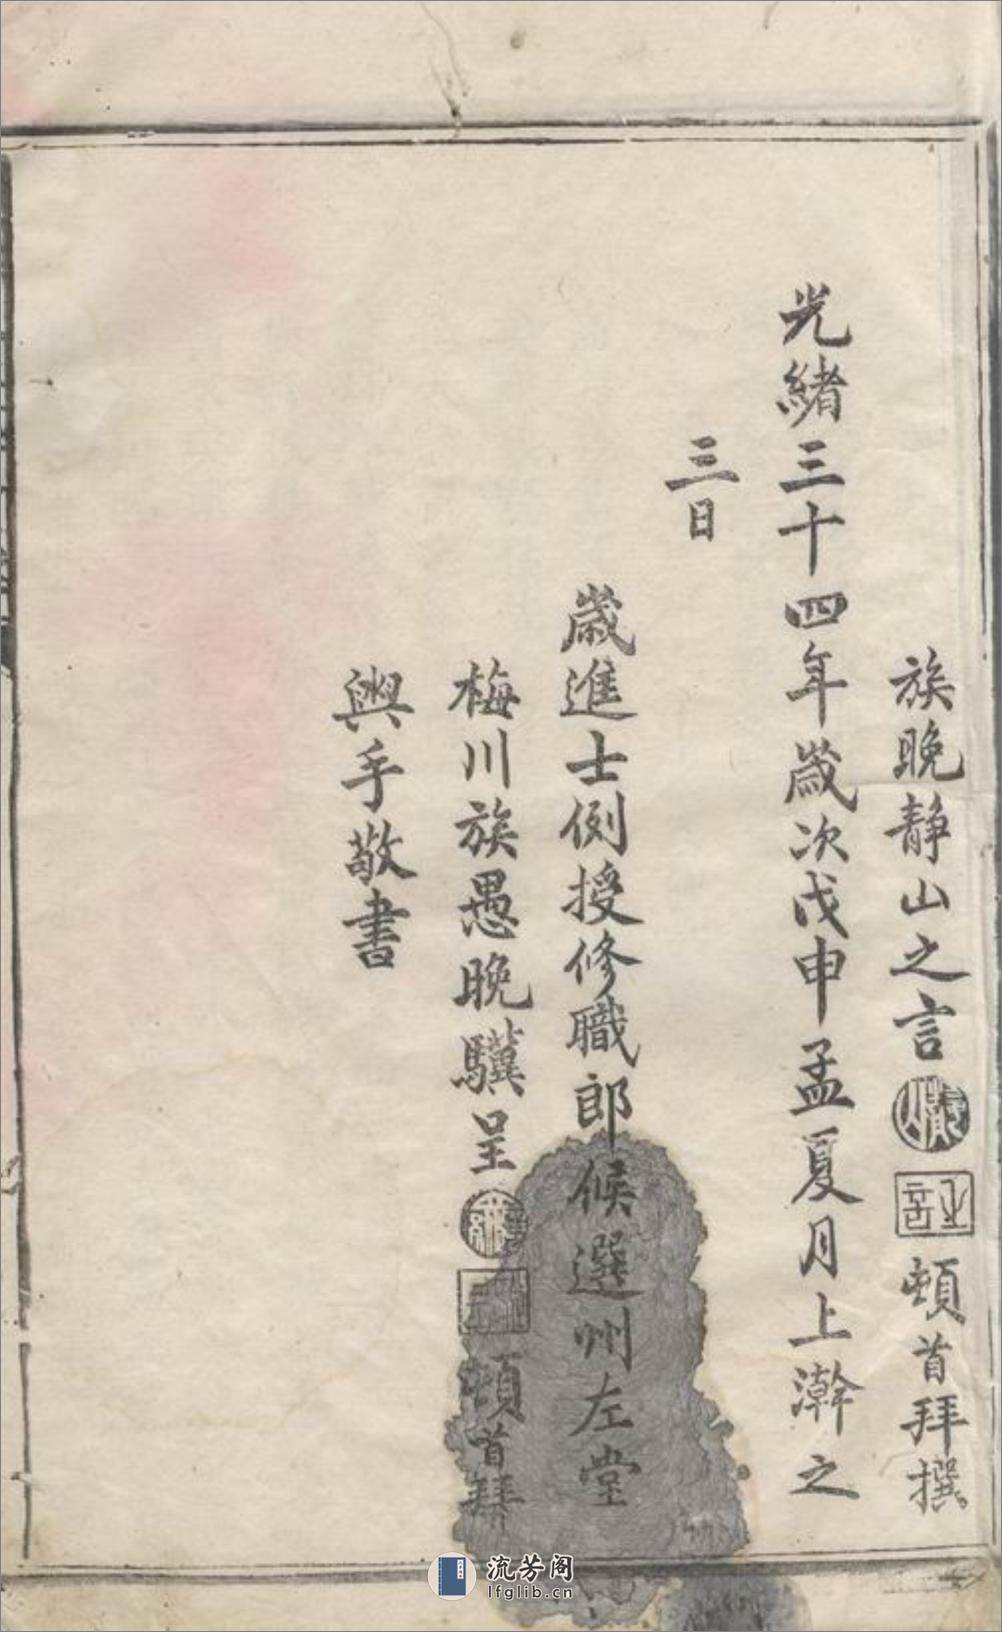 族晚靜山之言 之言 頓首拜撰
光緒三十四年歲次戊申孟夏月上澣之
三日
歲進士例授修職郎候選州左堂
梅川族愚晚驥呈 頓首拜
與手敬書
流芳阁
lfglib.cn